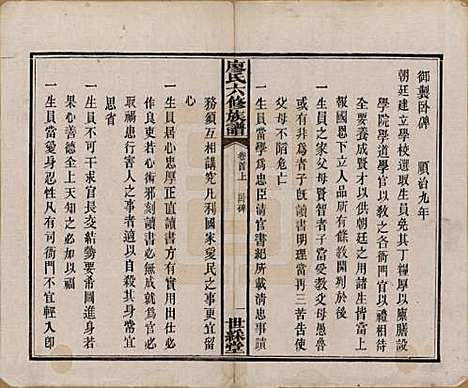 御製卧碑　順治九年
朝廷建立學校選取生員免其丁糧厚以廩膳設
學院學道學官以敎之各衙門官以禮相待
全要養成賢才以供朝廷之用諸生皆當上
報國恩下立人品所有條敎開列於後
一生員之家父母賢智者子當受敎父母愚魯
或有非爲者子旣讀書明理當再三苦告使
父母不陷危亡
一生員當學爲忠臣淸官書紀所載淸忠事蹟
廖氏六修族譜
卷首上　卧碑
世綵堂
務須互相講究凡國家愛民之事更宜留
心
一生員居心忠厚正直讀書方有實用出仕必
作良吏若心術邪刻讀書必無成就爲官必
取禍患行害人之事者適以自殺其身當
思省
一生員不可干求官長交結勢要希圖進身若
果心善德全上天知之必加以福
一生員凡有司衙門不宜輕入卽